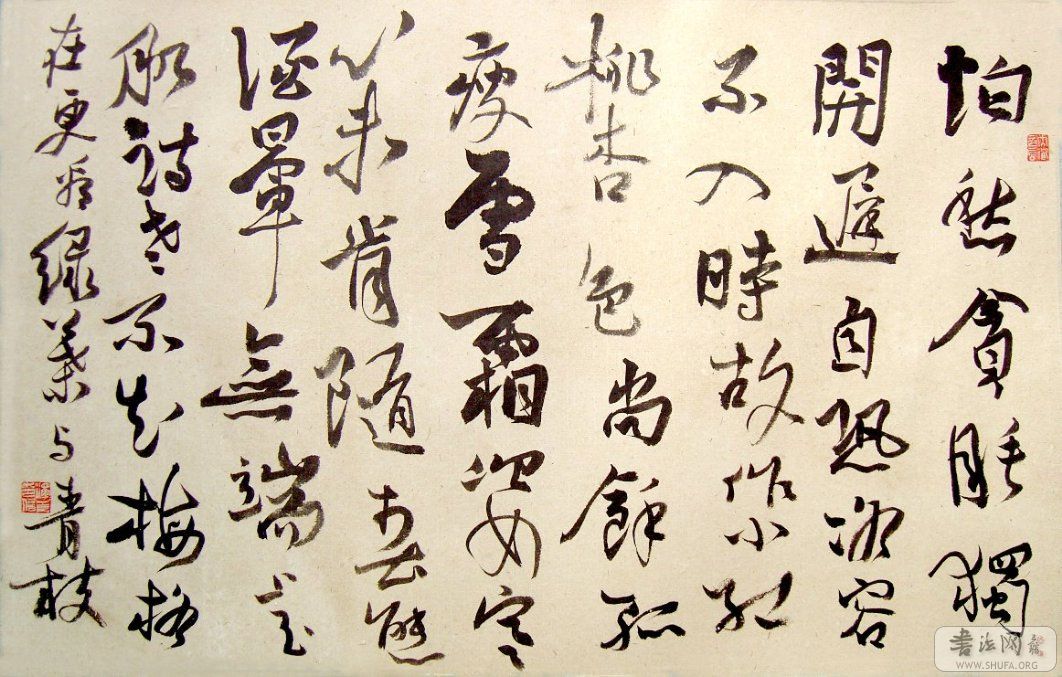 怕愁貪睡獨
開遲自恐冰容
不入時故作小紅
桃杏色尚餘孤
瘦雪霜姿寒
心未肯隨春態
酒暈無端上玉
肌詩老不知梅格
在更看綠葉与青枝
書法网
WWW.SHUFA.ORG